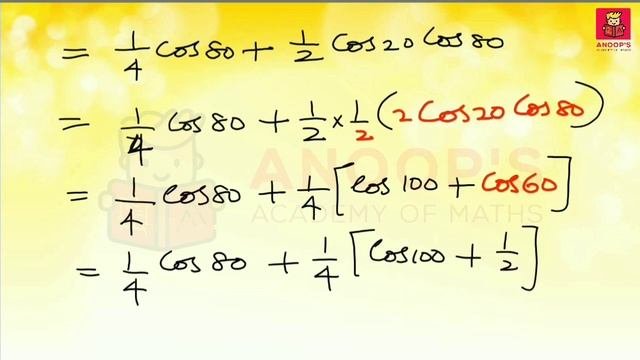 ANOOP'S
= 1/4 Cos 80 + 1/2 Cos 20 Cos 80
= 1/4 Cos 80 + 1/2 × 1/2 (2 Cos 20 Cos 80)
ANOOP'S
= 1/4 Cos 80 + 1/4 [Cos 100 + Cos 60]
ACADEMY OF MATHS
= 1/4 Cos 80 + 1/4 [Cos 100 + 1/2]